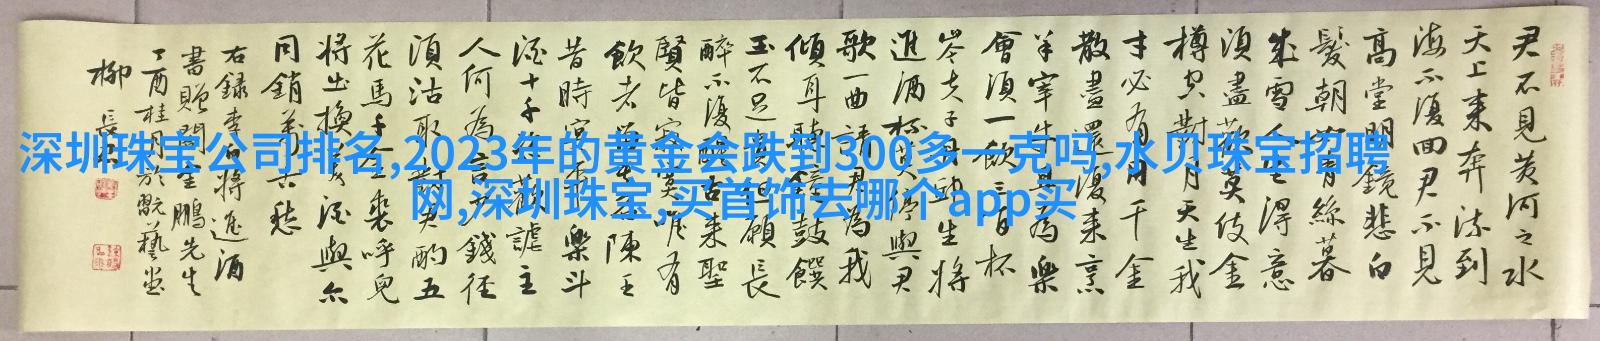 君不見黃河之水
天上来奔流到
海不復回君不見
高堂明鏡悲白
髮朝如青絲暮
成雪人生得意
須盡歡莫使金
樽空對月天生我
才必有用千金
散盡還復来烹
羊宰牛且為樂
會須一飲三百杯
岑夫子丹丘生將
進酒杯莫停與君
歌一曲請君為我
傾耳聽鐘鼓饌
玉不足貴但願長
醉不復醒古来聖
賢皆寂寞唯有
飲者留其名陳王
昔時宴平樂斗
酒十千恣歡謔主
人何為言少錢徑
須沽取對君酌五
花馬千金裘呼兒
將出換美酒與尔
同銷萬古愁
右録李白將進酒
書贈閆生鵬先生
丁酉桂月於翫藝堂
柳長
深圳珠宝公司排名,2023年的黄金会跌到300多一克吗,水贝珠宝招聘
网,深圳珠宝,买首饰去哪个app买